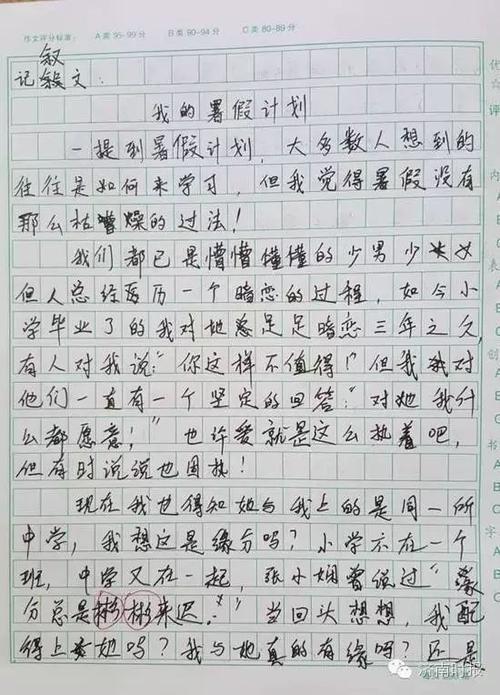 作文评分标准: A类 95-99分 B类 90-94分 C类 80-89分
叙
记叙文:
我的暑假计划
一提到暑假计划,大多数人想到的
往往是如何来学习,但我觉得暑假没有
那么枯燥的过法!
我们都已是懵懵懂懂的少男少女
但人总经历一个暗恋的过程,如今小
学毕业了的我对她足足暗恋三年之久
有人对我说:“你这样不值得!”但我对
他们一直有一个坚定的回答:“对她我什
么都愿意!”也许爱就是这么执着吧,
但有时说说也固执!
现在我也得知她与我上的是同一所
中学,我想这是缘分吗?小学亦在一个
班,中学又在一起,张小娴曾说过“缘
分总是彬彬来迟.”当回头想想,我配
得上她吗?我与她真的有缘吗?还是
优
评
内
A
B
C
表
A
B
C
创
A
B
C
书
A
B
C
字
济南时报